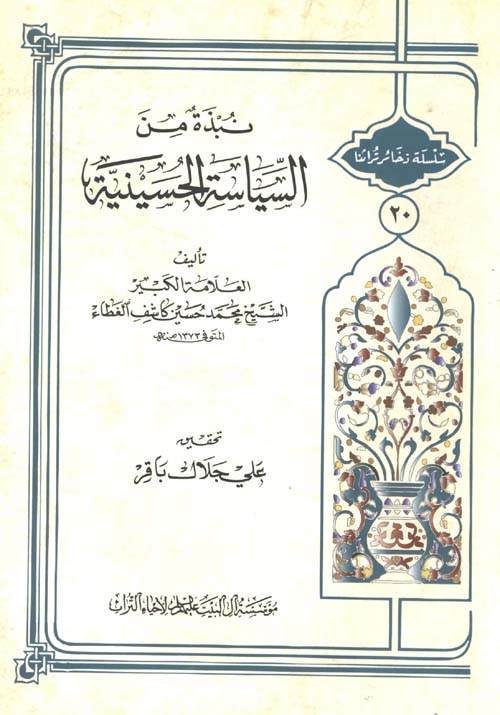 نُبْذَةٌ مِنَ
السِّيَاسَةِ الْحُسَيْنِيَّةِ
سلسلة ذخائر تراثنا
٢٠
تأليف
العلامة الكبير
الشيخ محمد حسين كاشف الغطاء
المتوفى ١٣٧٣ هـ
تحقيق
علي جلال باقر
مؤسسة آل البيت عليهم السلام لإحياء التراث